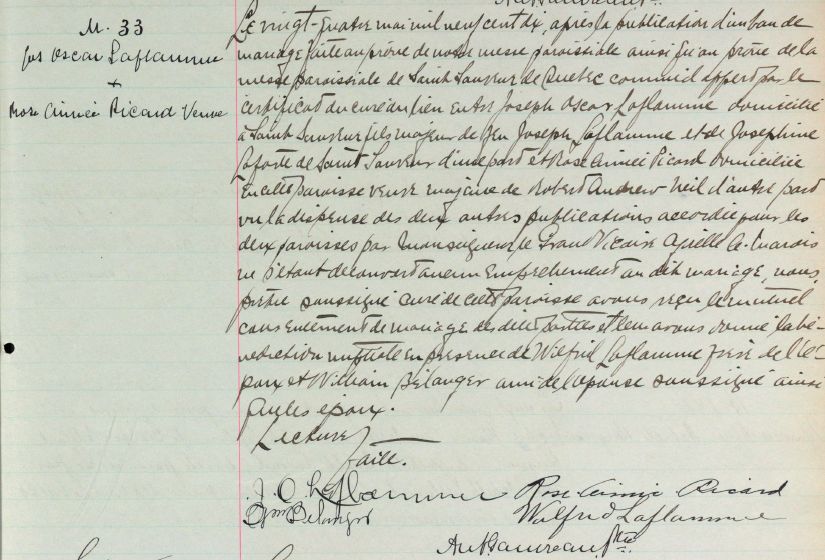 M. 33
Jos Oscar Laflamme
+
Rose Aimée Ricard Veuve
Le vingt-quatre mai mil neuf cent dix, après la publication d'un ban de
mariage faite au prône de notre messe paroissiale ainsi qu'au prône de la
messe paroissiale de Saint Sauveur de Québec comme il appert par le
certificat du curé du lieu entre Joseph Oscar Laflamme domicilié
à Saint Sauveur fils majeur de feu Joseph Laflamme et de Josephine
Laforte de Saint Sauveur d'une part et Rose Aimée Ricard domiciliée
en cette paroisse veuve majeure de Robert Andrew Neil d'autre part
vu la dispense des deux autres publications accordée pour les
deux paroisses par Monseigneur le Grand Vicaire C. A. Marois
ne s'étant découvert aucun empêchement au dit mariage, nous,
prêtre soussigné curé de cette paroisse avons reçu le mutuel
consentement de mariage des dites parties et leur avons donné la bé-
nédiction nuptiale en présence de Wilfrid Laflamme frère de l'é-
poux et William Bélanger ami de l'épouse soussigné ainsi
que les époux.
Lecture
faite.
J. O. Laflamme Rose Aimée Ricard
Wm Belanger Wilfrid Laflamme
Ptre.